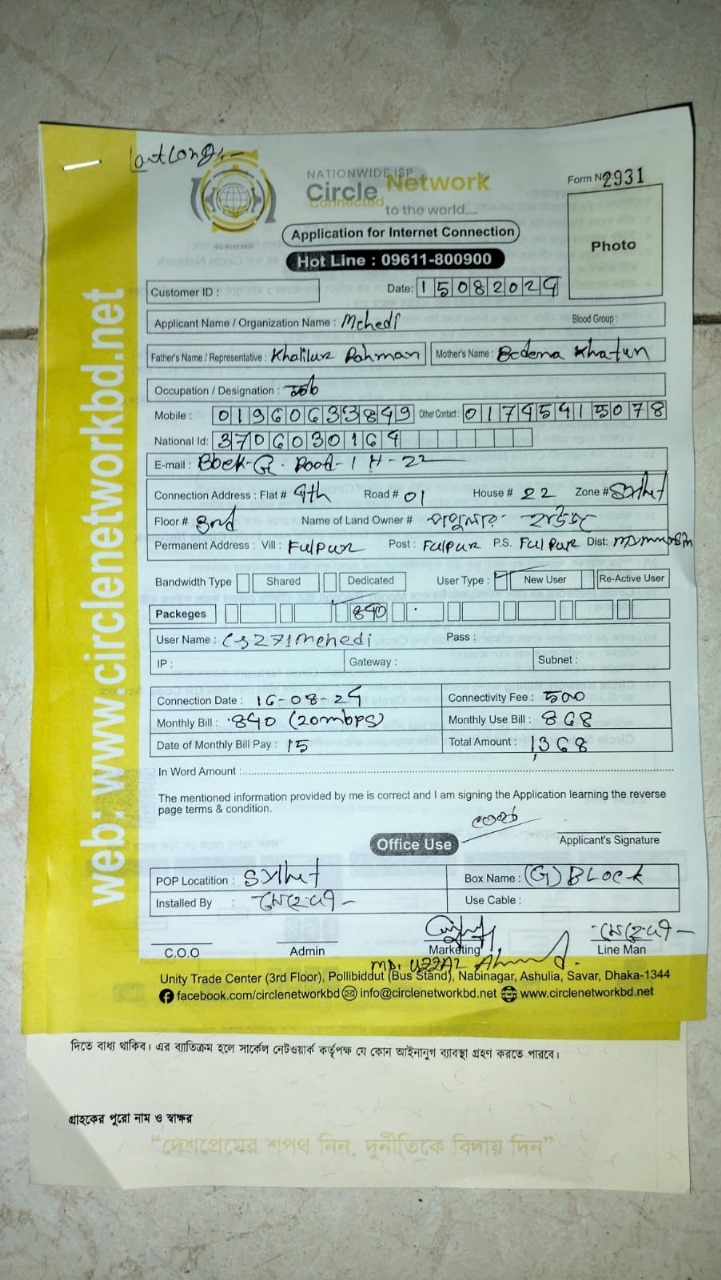 NATIONWIDE ISP
Circle Network
Connected to the world.....
Form No 2931
Application for Internet Connection
Hot Line : 09611-800900
Photo
Customer ID :
Date: 15082024
Applicant Name / Organization Name : Mehedi
Blood Group :
Father's Name / Representative : Khalilur Rahman
Mother's Name : Bedena Khatun
Occupation / Designation : Job
Mobile : 01960633849 Other Contact : 01745415078
National Id: 3706030164
E-mail : Block-G. Road-1 H-22
Connection Address : Flat # 4th Road # 01 House # 22 Zone #
Floor # 3rd Name of Land Owner # পপুলার হাউজ
Permanent Address : Vill : Fulpur Post : Fulpur P.S. Fulpur Dist:
Bandwidth Type Shared Dedicated User Type : New User Re-Active User
Packeges 840
User Name : CS271mehedi Pass :
IP : Gateway : Subnet :
Connection Date : 16-08-24 Connectivity Fee : 500
Monthly Bill : 840 (20mbps) Monthly Use Bill : 868
Date of Monthly Bill Pay : 15 Total Amount : 1368
In Word Amount :
The mentioned information provided by me is correct and I am signing the Application learning the reverse
page terms & condition.
Office Use
Applicant's Signature
POP Locatition : Box Name : (G) BLock
Installed By : মেহেদী Use Cable :
মেহেদী
C.O.O Admin Marketing Line Man
MD. UZZAL Ahmed.
Unity Trade Center (3rd Floor), Pollibiddut (Bus Stand), Nabinagar, Ashulia, Savar, Dhaka-1344
facebook.com/circlenetworkbd info@circlenetworkbd.net www.circlenetworkbd.net
web: www.circlenetworkbd.net
দিতে বাধ্য থাকিব। এর ব্যতিক্রম হলে সার্কেল নেটওয়ার্ক কর্তৃপক্ষ যে কোন আইনানুগ ব্যাবস্থা গ্রহণ করতে পারবে।
গ্রাহকের পুরো নাম ও স্বাক্ষর
“দেশপ্রেমের শপথ নিন, দুর্নীতিকে বিদায় দিন”